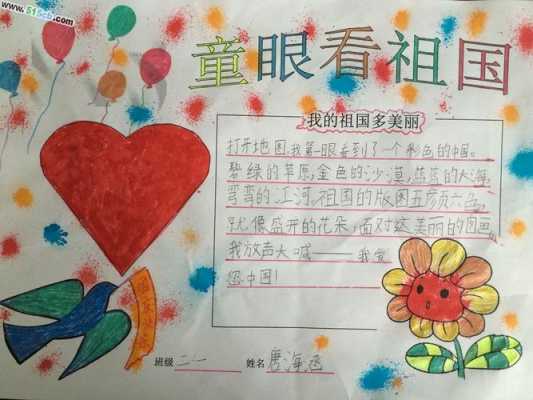 www.515cb.com
童眼看祖国
我的祖国多美丽
打开地图,我第一眼看到了一个彩色的中国。
碧绿的草原,金色的沙漠,蓝蓝的大海,
弯弯的江河,祖国的版图五彦页六色,
就像盛开的花朵,面对这美丽的图画,
我放声大喊——我爱
您,中国!
班级 二一 姓名 唐海